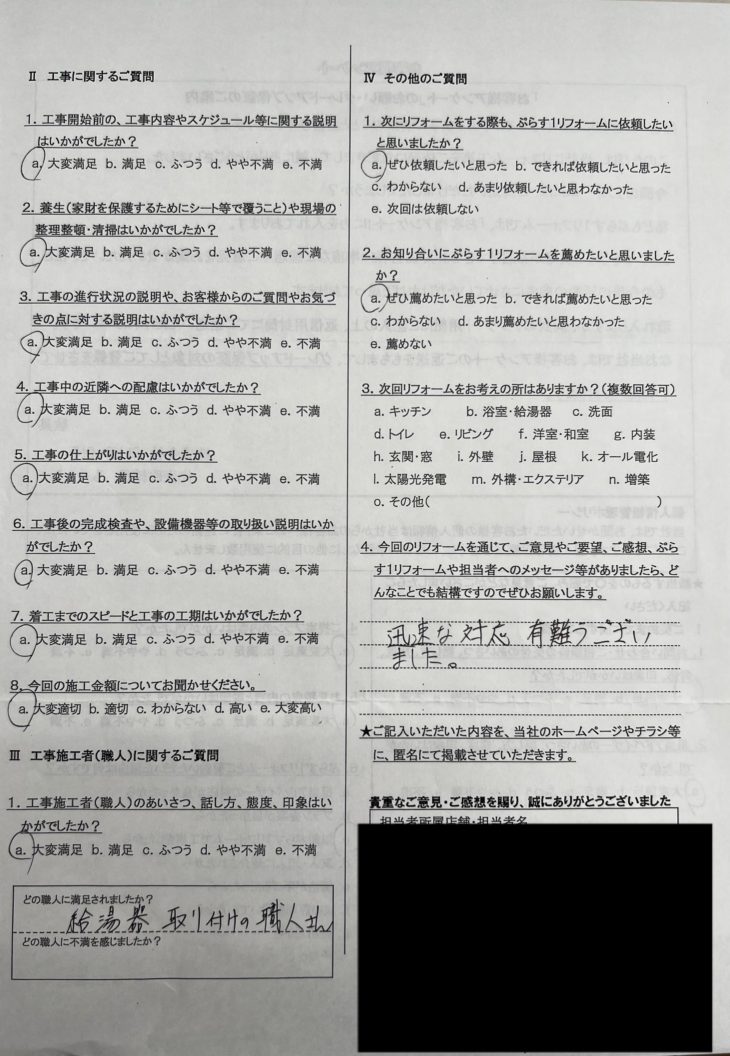 Ⅱ 工事に関するご質問
1. 工事開始前の、工事内容やスケジュール等に関する説明
はいかがでしたか？
a. 大変満足 b. 満足 c. ふつう d. やや不満 e. 不満
2. 養生（家財を保護するためにシート等で覆うこと）や現場の
整理整頓・清掃はいかがでしたか？
a. 大変満足 b. 満足 c. ふつう d. やや不満 e. 不満
3. 工事の進行状況の説明や、お客様からのご質問やお気づ
きの点に対する説明はいかがでしたか？
a. 大変満足 b. 満足 c. ふつう d. やや不満 e. 不満
4. 工事中の近隣への配慮はいかがでしたか？
a. 大変満足 b. 満足 c. ふつう d. やや不満 e. 不満
5. 工事の仕上がりはいかがでしたか？
a. 大変満足 b. 満足 c. ふつう d. やや不満 e. 不満
6. 工事後の完成検査や、設備機器等の取り扱い説明はいか
がでしたか？
a. 大変満足 b. 満足 c. ふつう d. やや不満 e. 不満
7. 着工までのスピードと工事の工期はいかがでしたか？
a. 大変満足 b. 満足 c. ふつう d. やや不満 e. 不満
8. 今回の施工金額についてお聞かせください。
a. 大変適切 b. 適切 c. わからない d. 高い e. 大変高い
Ⅲ 工事施工者（職人）に関するご質問
1. 工事施工者（職人）のあいさつ、話し方、態度、印象はい
かがでしたか？
a. 大変満足 b. 満足 c. ふつう d. やや不満 e. 不満
どの職人に満足されましたか？
給湯器 取り付けの職人さん
どの職人に不満を感じましたか？
Ⅳ その他のご質問
1. 次にリフォームをする際も、ぷらす1リフォームに依頼したい
と思いましたか？
a. ぜひ依頼したいと思った b. できれば依頼したいと思った
c. わからない d. あまり依頼したいと思わなかった
e. 次回は依頼しない
2. お知り合いにぷらす1リフォームを薦めたいと思いました
か？
a. ぜひ薦めたいと思った b. できれば薦めたいと思った
c. わからない d. あまり薦めたいと思わなかった
e. 薦めない
3. 次回リフォームをお考えの所はありますか？（複数回答可）
a. キッチン b. 浴室・給湯器 c. 洗面
d. トイレ e. リビング f. 洋室・和室 g. 内装
h. 玄関・窓 i. 外壁 j. 屋根 k. オール電化
l. 太陽光発電 m. 外構・エクステリア n. 増築
o. その他（ ）
4. 今回のリフォームを通じて、ご意見やご要望、ご感想、ぷら
す1リフォームや担当者へのメッセージ等がありましたら、ど
んなことでも結構ですのでぜひお願いします。
迅速な対応 有難うござい
ました。
★ご記入いただいた内容を、当社のホームページやチラシ等
に、匿名にて掲載させていただきます。
貴重なご意見・ご感想を賜り、誠にありがとうございました
担当者所属店舗・担当者名